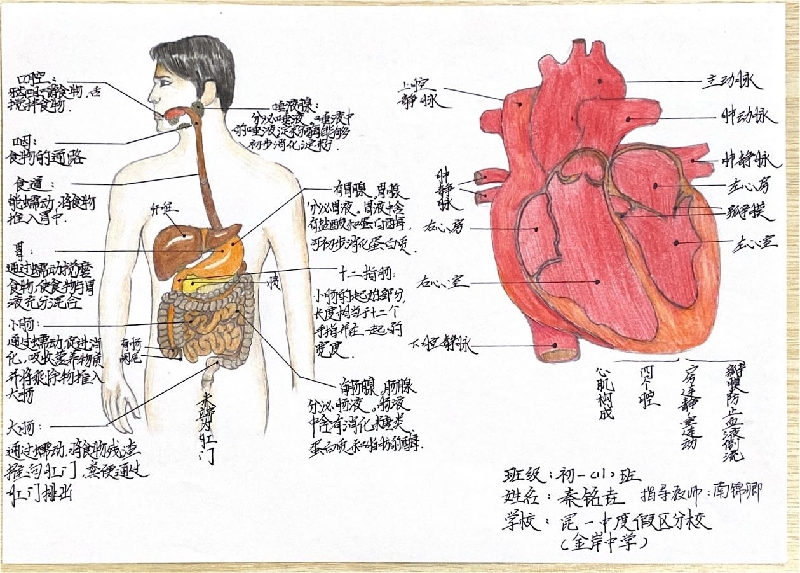 口腔:
搅拌食物.
咽:
食物的通路
食道:
能蠕动,将食物
推入胃中.
胃:
通过蠕动搅磨
食物,使食物与胃
液充分混合
小肠:
通过蠕动,促进消
化,吸收营养物质
并将残渣物推入
大肠
大肠:
通过蠕动,将食物残渣
推向肛门,粪便通过
肛门排出
唾液腺:
分泌唾液,唾液中
初步消化淀粉.
肝脏
有胃腺,胃腺
分泌胃液,胃液中含
可初步消化蛋白质
十二指肠:
小肠的起始部分,
长度相当于十二个
手指并在一起的
宽度.
胰
末端为肛门
有肠腺,肠腺
分泌肠液,肠液
中含有消化糖类,
蛋白质和脂肪的酶
上腔
静脉
主动脉
肺动脉
肺静脉
左心房
瓣膜
左心室
肺
静
脉
右心房
右心室
下腔静脉
心肌构成
四个腔
房连静室连动
瓣膜防止血液倒流
班级:初一(1)班
姓名:秦铭 指导教师:南锦卿
学校:昆一中度假区分校
(金岸中学)